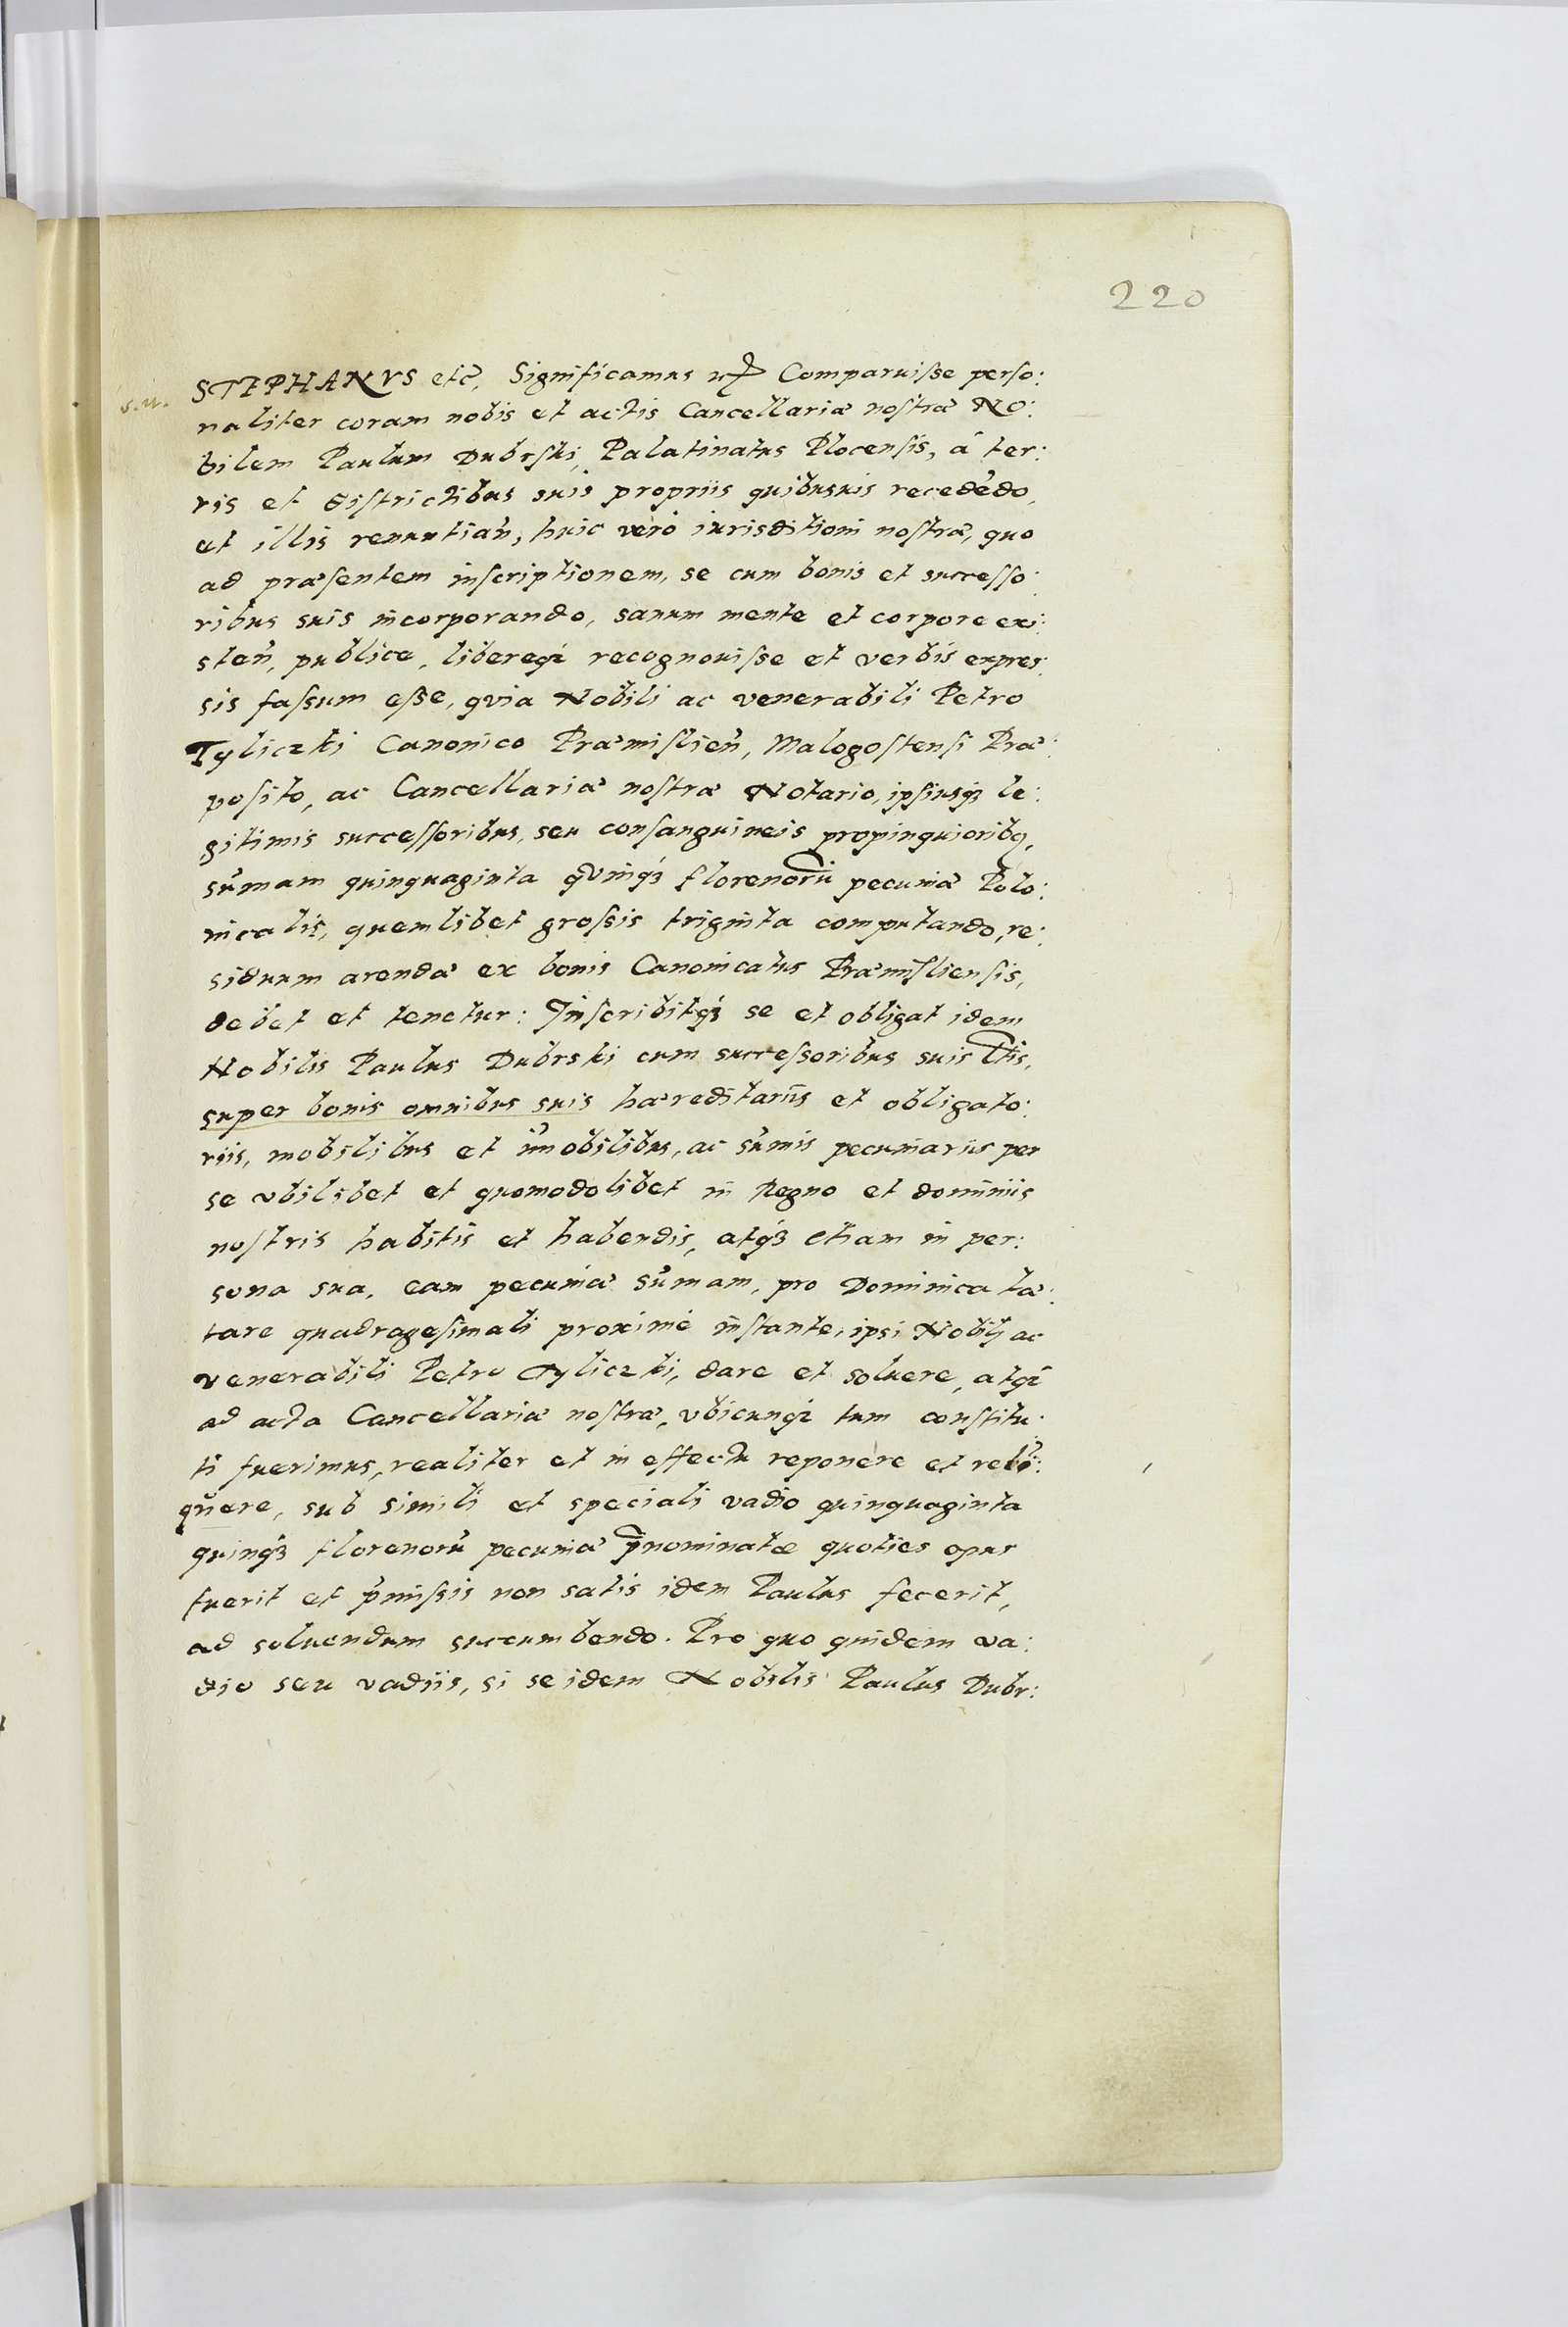 220
STEPHANVS etc̃, Significamus Comparuisse perso:
naliter coram nobis et actis Cancellariæ nostræ No:
bilem Paulum Dubrski, Palatinatus Plocensis, á ter:
ris et districtibus suis propriis quibusuis recedẽdo,
et illis renuntiañ, huic veró iurisditioni nostræ, quo
ad præsentem inscriptionem, se cum bonis et successo:
ribus suis incorporando, sanum mente et corpore exi:
steñ, publice, libereq́; recognouisse et verbis expres:
sis fassum esse, qvia Nobili ac venerabili Petro
Tyliczki Canonico Præmislieñ, Malogostensi Præ:
posito, ac Cancellariæ nostræ Notario, ipsiusq́; le:
gitimis successoribus, seu consanguineis propinquioribq,
sum̃am quinquaginta qvinq́; florenorũ pecuniæ Polo:
nicalis, quemlibet grossis triginta computando, re:
siduum arendæ ex bonis Canonicatus Præmisliensis,
debet et tenetur: Inscribitq́; se et obligat idem
Nobilis Paulus Dubrski cum successoribus suis
super bonis omnibus suis hæreditariis et obligato:
riis, mobilibus et im̃obilibus, ac sum̃is pecuniariis per
se vbilibet et quomodolibet in Regno et dominiis
nostris habitis et habendis, atq́; etiam in per:
sona sua, eam pecuniæ sum̃am, pro Dominica læ:
tare quadragesimali proximé instante, ipsi Nobili ac
venerabili Petro Tyliczki, dare et soluere, atq́;
ad acta Cancellariæ nostræ, vbicunq́; tum constitu:
ti fuerimus, realiter et in effectu reponere et reli:
quere, sub simili et speciali vadio quinquaginta
quinq́; florenorũ pecuniæ p̃nominatæ quoties opus
fuerit et p̃missis non satis idem Paulus fecerit,
ad soluendum succumbendo. Pro quo quidem va:
dio seu vadiis, si se idem Nobilis Paulus Dubr: